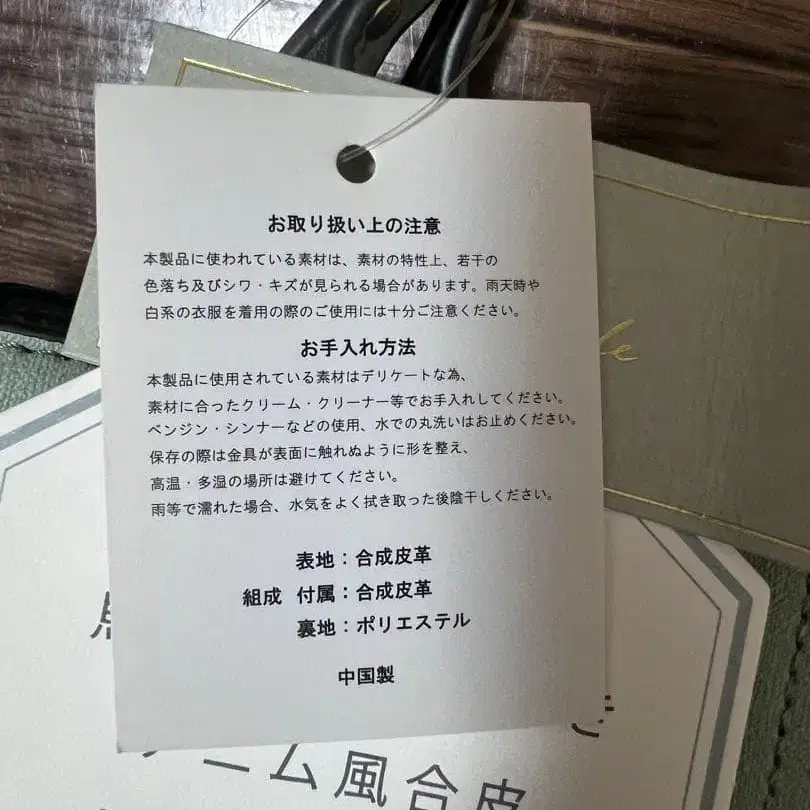 お取り扱い上の注意
本製品に使われている素材は、素材の特性上、若干の
色落ち及びシワ・キズが見られる場合があります。雨天時や
白系の衣服を着用の際のご使用には十分ご注意ください。
お手入れ方法
本製品に使用されている素材はデリケートな為、
素材に合ったクリーム・クリーナー等でお手入れしてください。
ベンジン・シンナーなどの使用、水での丸洗いはお止めください。
保存の際は金具が表面に触れぬように形を整え、
高温・多湿の場所は避けてください。
雨等で濡れた場合、水気をよく拭き取った後陰干しください。
表地：合成皮革
組成 付属：合成皮革
裏地：ポリエステル
中国製
ーム風合皮